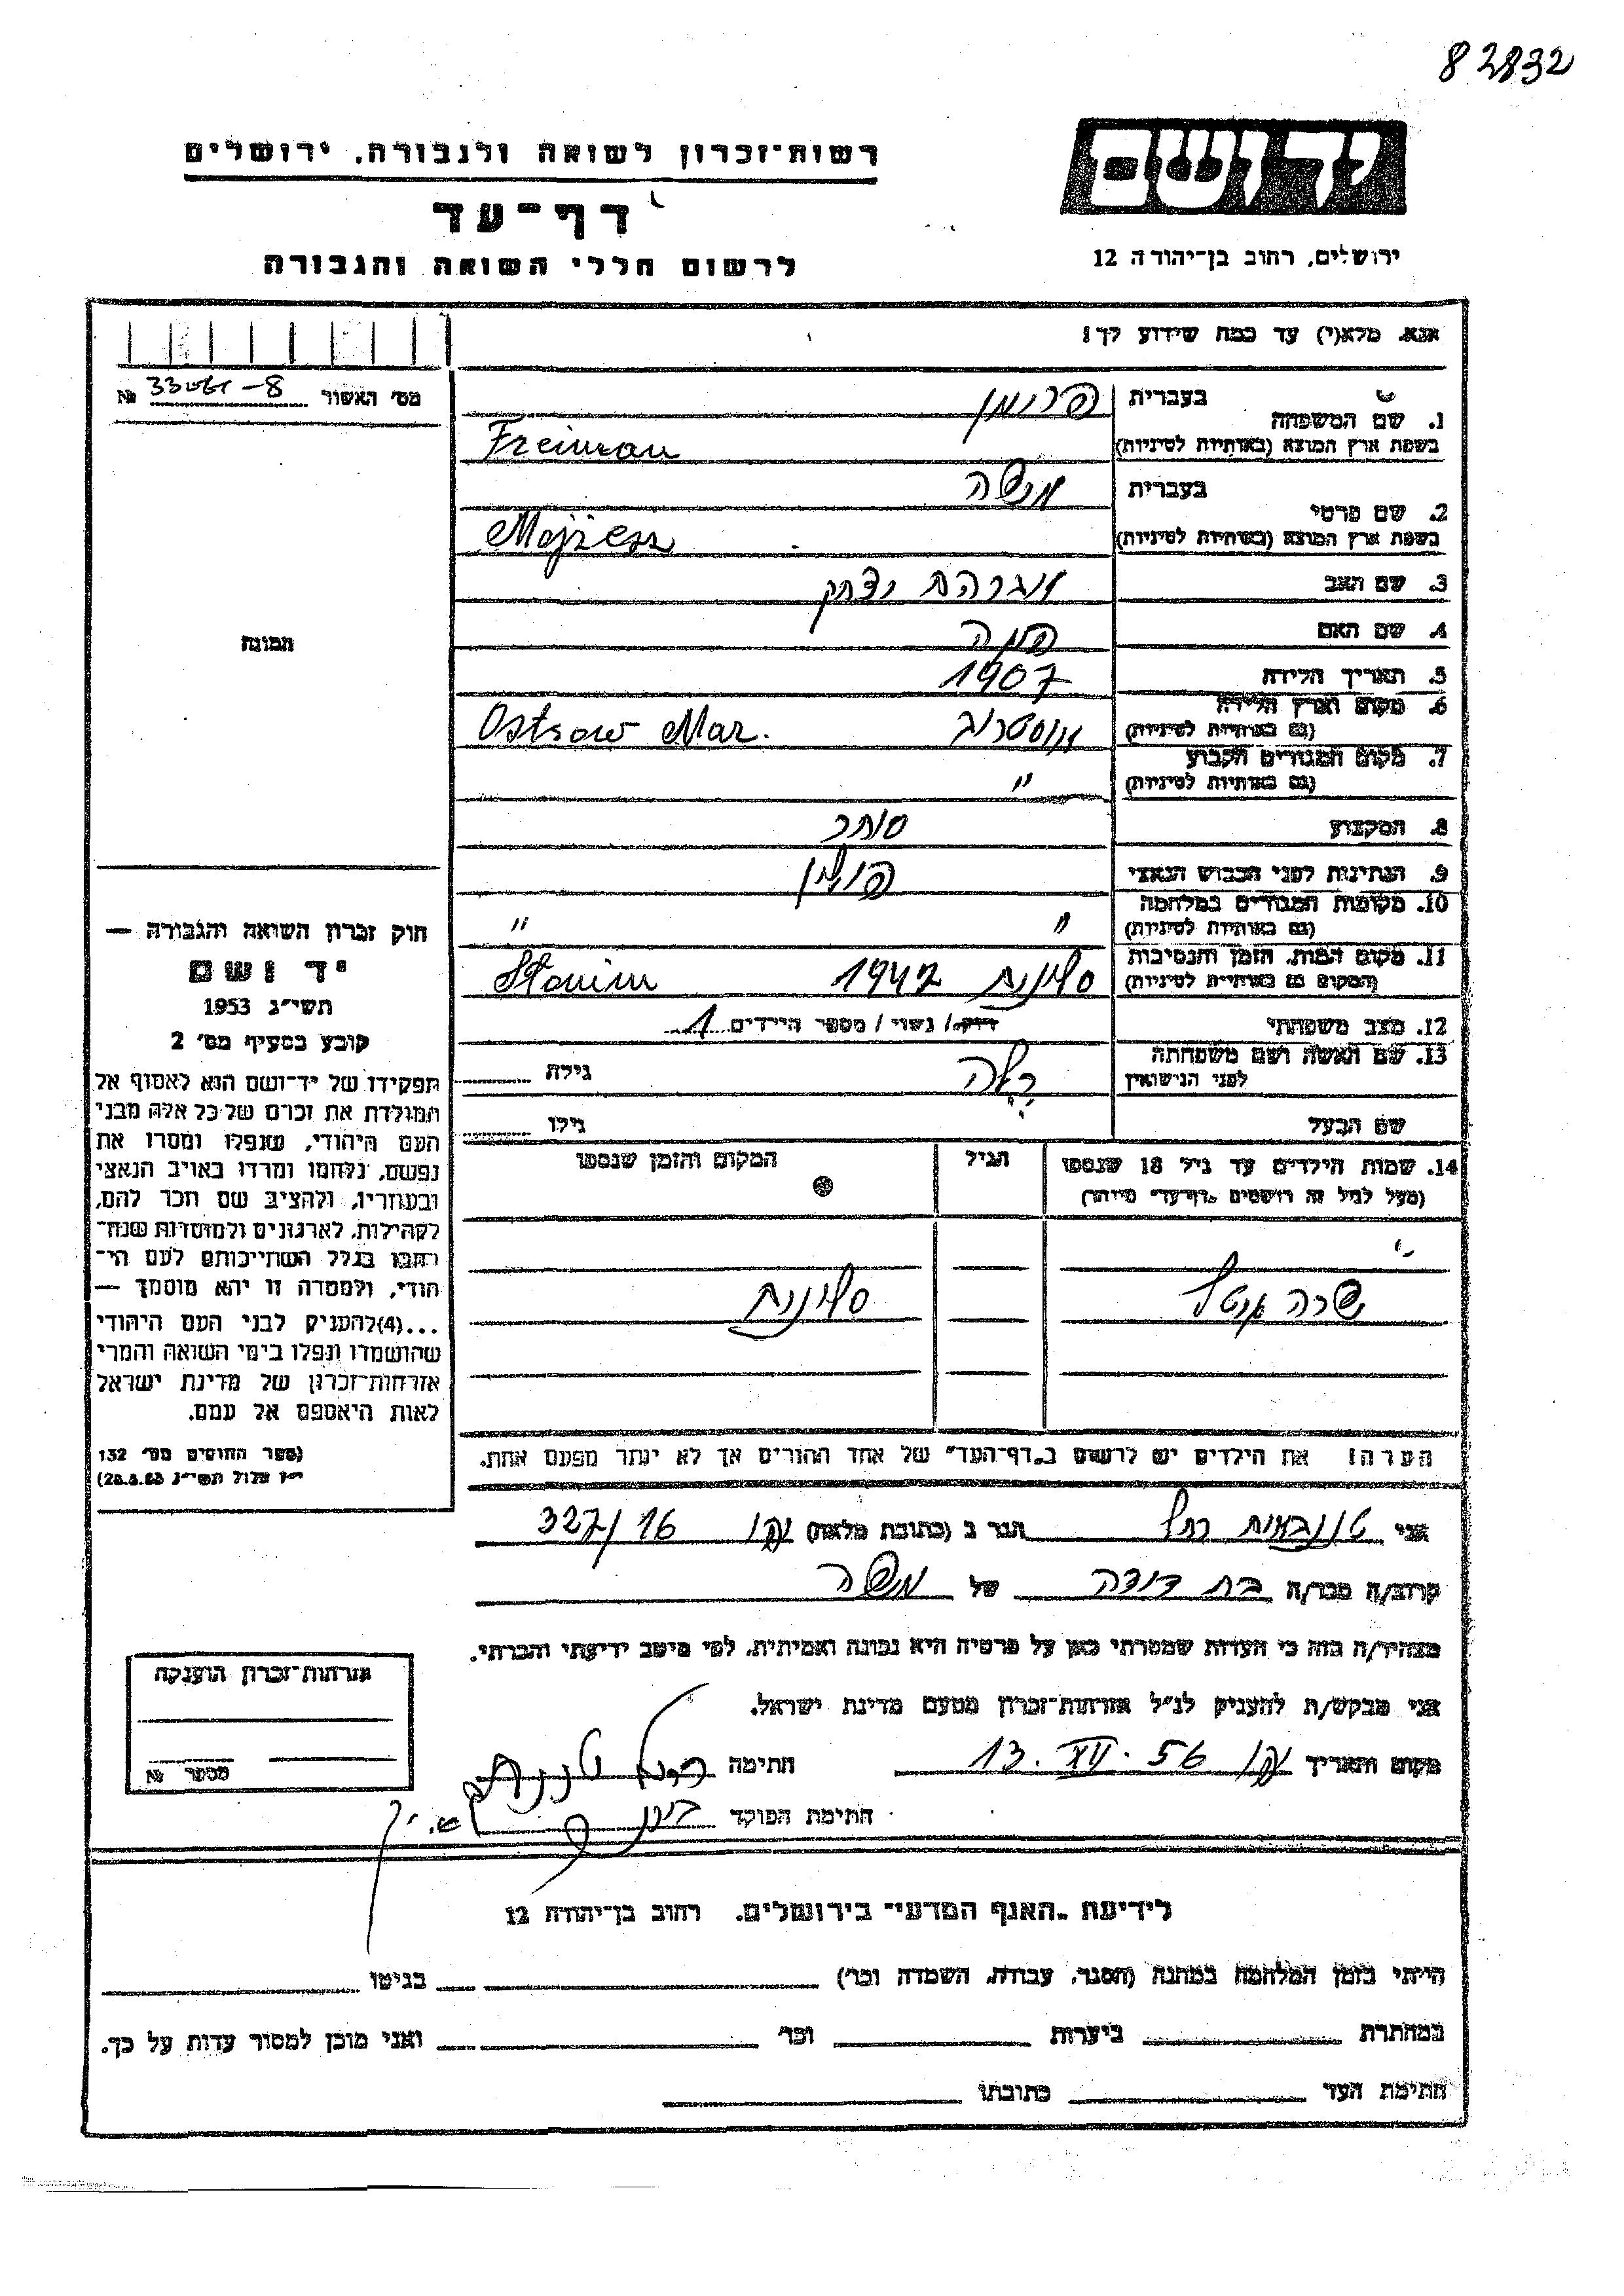 82832
רשות־זכרון לשואה ולגבורה, ירושלים
יד ושם
דף־עד
ירושלים, רחוב בן־יהודה 12
לרשום חללי השואה והגבורה
אנא, מלא(י) עד כמה שידוע לך!
מס׳ האשור №
1. שם המשפחה
בעברית פרימן
בשפת ארץ המוצא (באותיות לטיניות) Freiman
2. שם פרטי
בעברית משה
בשפת ארץ המוצא (באותיות לטיניות) Mojżesz
3. שם האב אברהם יצחק
4. שם האם
5. תאריך הלידה 1907
6. מקום וארץ הלידה
(גם באותיות לטיניות) אוסטרוב Ostrow Maz.
7. מקום המגורים הקבוע
(גם באותיות לטיניות) "
8. המקצוע סוחר
9. הנתינות לפני הכבוש הנאצי פולין
10. מקומות המגורים במלחמה
(גם באותיות לטיניות) " "
11. מקום המות, הזמן והנסיבות
(המקום גם באותיות לטיניות) סלונים 1942 Słonim
12. מצב משפחתי רוק/ נשוי / מספר הילדים 1
13. שם האשה ושם משפחתה
לפני הנישואין גילה
שם הבעל גילו
14. שמות הילדים עד גיל 18 שנספו
(מעל לגיל זה רושמים "דף־עד" מיוחד)
הגיל
המקום והזמן שנספו
שרה סלונים
תמונה
חוק זכרון השואה והגבורה —
יד ושם
תשי״ג 1953
קובע בסעיף מס׳ 2
תפקידו של יד־ושם הוא לאסוף אל
המולדת את זכרם של כל אלה מבני
העם היהודי, שנפלו ומסרו את
נפשם, נלחמו ומרדו באויב הנאצי
ובעוזריו, ולהציב שם וזכר להם,
לקהילות, לארגונים ולמוסדות שנח־
רבו בגלל השתייכותם לעם הי־
הודי, ולמטרה זו יהא מוסמך —
...(4)להעניק לבני העם היהודי
שהושמדו ונפלו בימי השואה והמרי
אזרחות־זכרון של מדינת ישראל
לאות היאספם אל עמם.
(ספר החוקים מס׳ 132
י״ז אלול תשי״ג 28.8.53)
הערה! את הילדים יש לרשום ב"דף־העד" של אחד ההורים אך לא יותר מפעם אחת.
אני רחל הגר ב (כתובת מלאה) עכו 327/16
קרוב/ה מכר/ה בת דודה של משה
מצהיר/ה בזה כי העדות שמסרתי כאן על פרטיה היא נכונה ואמיתית, לפי מיטב ידיעתי והכרתי.
אני מבקש/ת להעניק לנ״ל אזרחות־זכרון מטעם מדינת ישראל.
מקום ותאריך עכו 13. XII. 56 חתימה
חתימת הפוקד
אזרחות־זכרון הוענקה
מספר №
לידיעת "האגף המדעי" בירושלים, רחוב בן־יהודה 12
הייתי בזמן המלחמה במחנה (הסגר, עבודה, השמדה וכו׳) בגיטו
במחתרת ביערות וכו׳ ואני מוכן למסור עדות על כך.
חתימת העד כתובתו